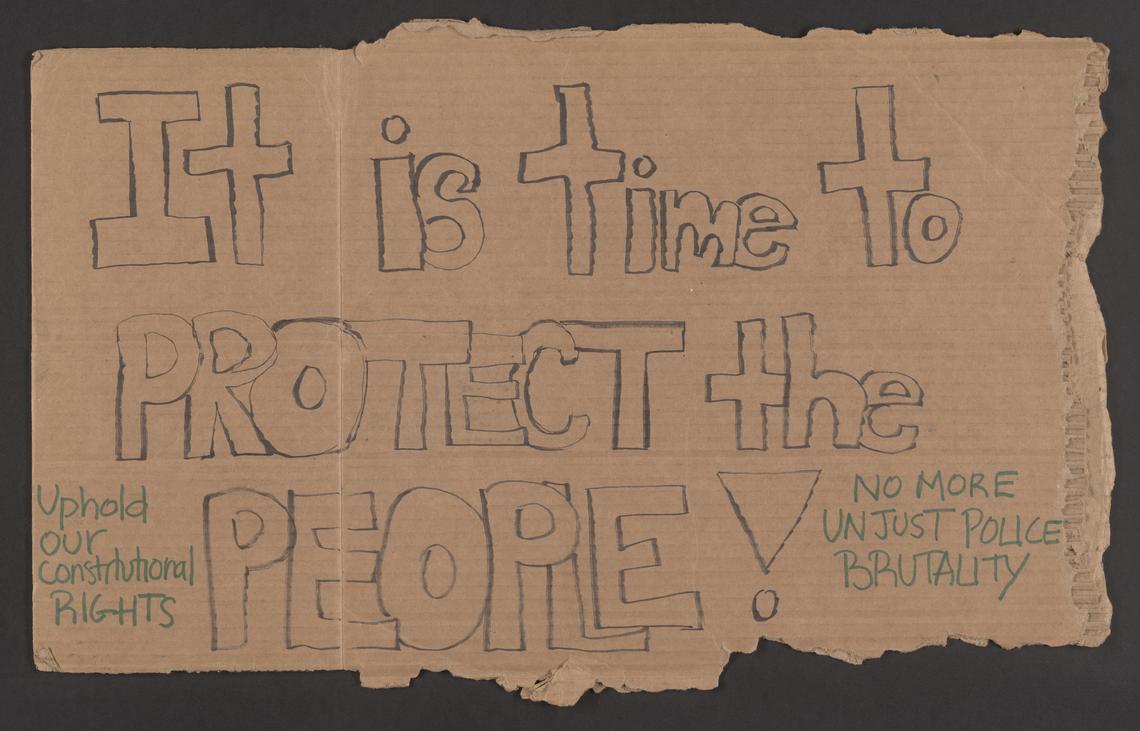 It is time to
PROTECT the
PEOPLE!
Uphold
our
constitutional
RIGHTS
NO MORE
UNJUST POLICE
BRUTALITY